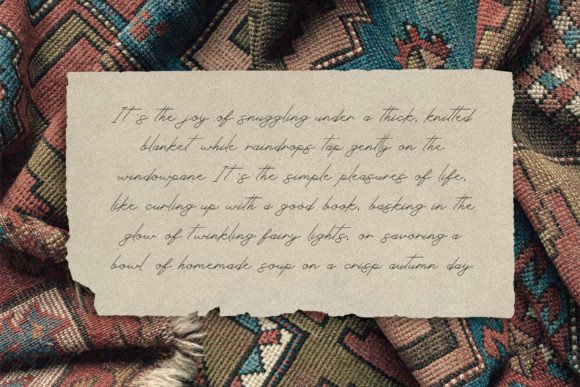 It's the joy of snuggling under a thick, knitted
blanket while raindrops tap gently on the
windowpane. It's the simple pleasures of life,
like curling up with a good book, basking in the
glow of twinkling fairy lights, or savoring a
bowl of homemade soup on a crisp autumn day.